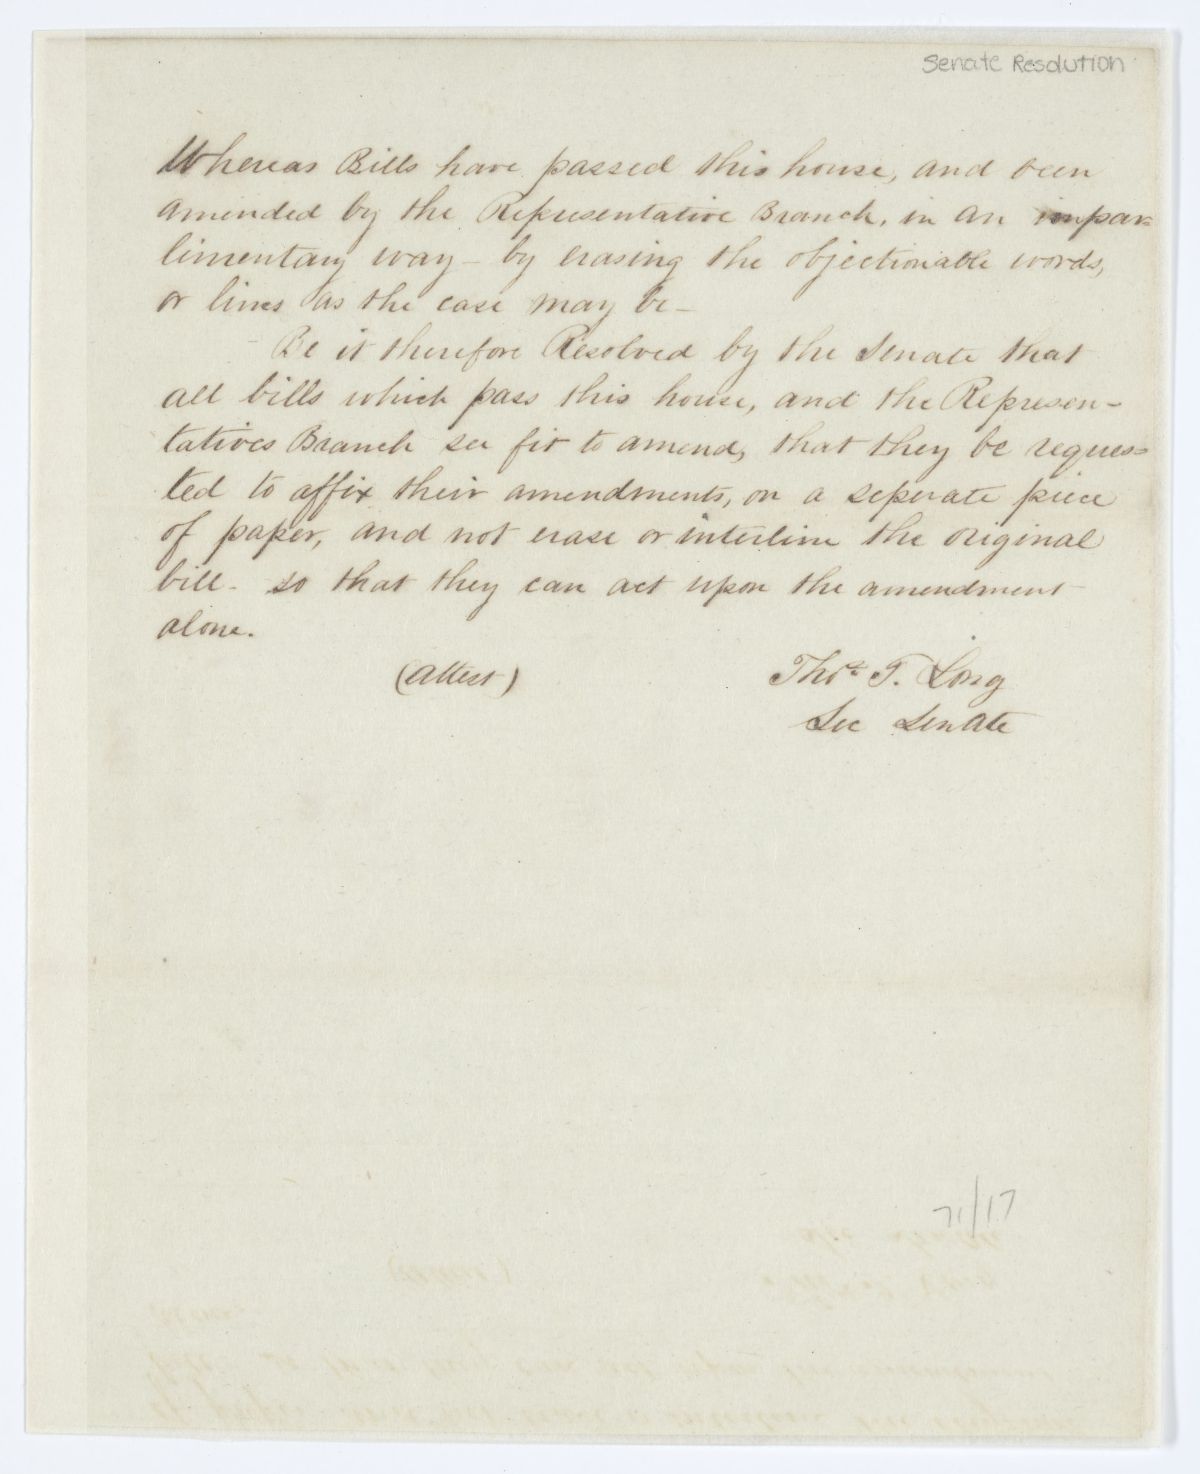 Senate Resolution
Whereas Bills have passed this house, and been
amended by the Representative Branch, in an impar-
limentary way - by erasing the objectionable words,
or lines as the case may be -
Be it therefore Resolved by the Senate that
all bills which pass this house, and the Represen-
tatives Branch see fit to amend, that they be reques-
ted to affix their amendments, on a seperate piece
of paper, and not erase or interline the original
bill - so that they can act upon the amendment
alone.
(attest) Thos. T. Long
Sec Senate
71/17